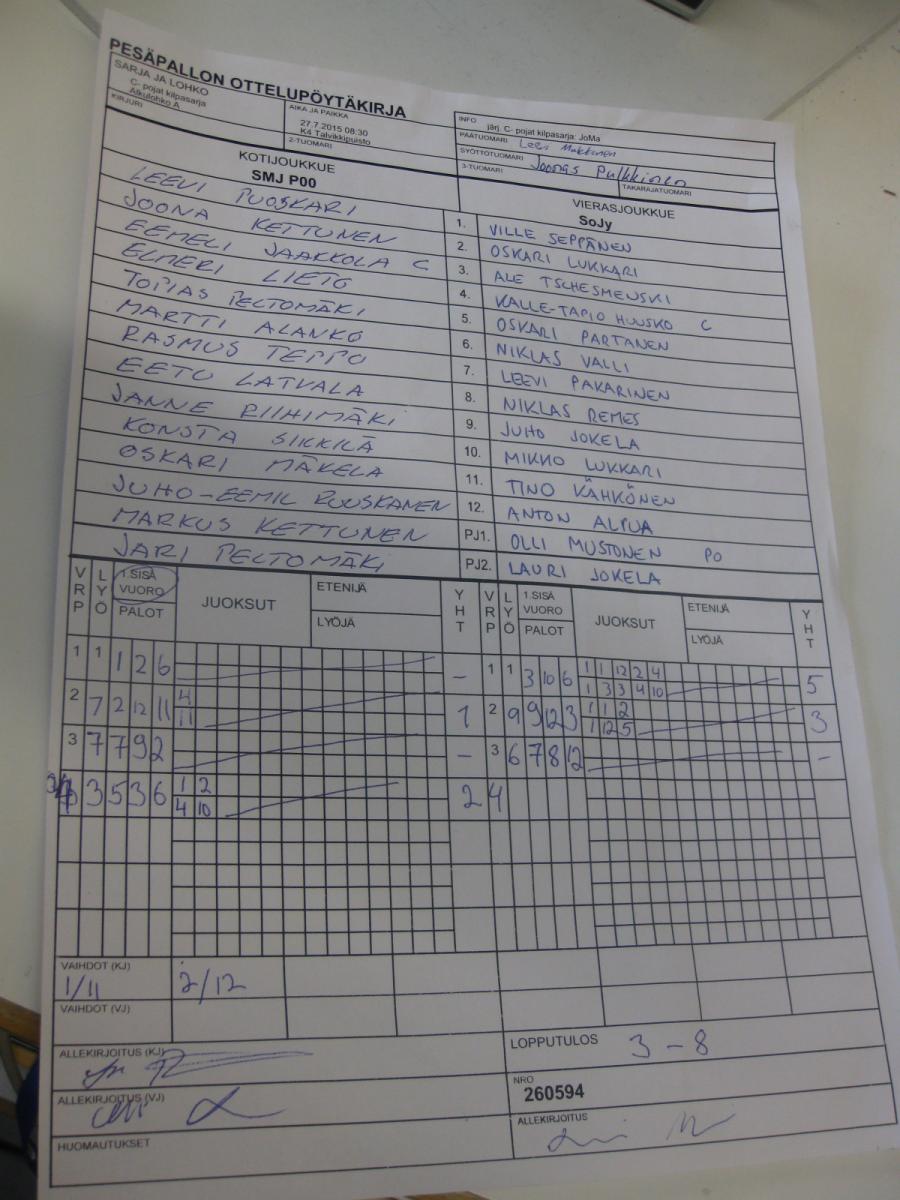 PESÄPALLON OTTELUPÖYTÄKIRJA
SARJA JA LOHKO
C- pojat kilpasarja
Alkulohko A
KIRJURI
AIKA JA PAIKKA
27.7.2015 08:30
K4 Talvikkipuisto
2-TUOMARI
INFO
järj. C- pojat kilpasarja: JoMa
PÄÄTUOMARI Leevi Makkinen
SYÖTTÖTUOMARI Joonas Pulkkinen
3-TUOMARI TAKARAJATUOMARI
KOTIJOUKKUE
SMJ P00
VIERASJOUKKUE
SoJy
LEEVI PUOSKARI 1. VILLE SEPPÄNEN
JOONA KETTUNEN 2. OSKARI LUKKARI
EEMELI JAAKKOLA C 3. ALE TSCHESMENSKI
ELMERI LIETO 4. KALLE-TAPIO HUUSKO C
TOPIAS PELTOMÄKI 5. OSKARI PARTANEN
MARTTI ALANKO 6. NIKLAS VALLI
RASMUS TEPPO 7. LEEVI PAKARINEN
EETU LATVALA 8. NIKLAS REMES
JANNE RIIHIMÄKI 9. JUHO JOKELA
KONSTA SIKKILÄ 10. MIKKO LUKKARI
OSKARI MÄKELÄ 11. TINO KÄHKÖNEN
JUHO-EEMIL RUUSKANEN 12. ANTON ALPUA
MARKUS KETTUNEN PJ1. OLLI MUSTONEN PO
JARI PELTOMÄKI PJ2. LAURI JOKELA
VRP LYÖ 1.SISÄ VUORO PALOT JUOKSUT ETENIJÄ LYÖJÄ YHT VRP LYÖ 1.SISÄ VUORO PALOT JUOKSUT ETENIJÄ LYÖJÄ YHT
1 1 1 2 6 - 1 1 3 10 6 1 1 12 2 4 5
1 3 3 4 10
2 7 2 12 11 4 1 2 9 9 12 3 1 1 2 3
11 1 12 5
3 7 7 9 2 - 3 6 7 8 12 -
3 5 3 6 1 2 2 4
4 10
VAIHDOT (KJ)
1/11 2/12
VAIHDOT (VJ)
ALLEKIRJOITUS (KJ)
LOPPUTULOS 3 - 8
ALLEKIRJOITUS (VJ)
NRO
260594
HUOMAUTUKSET
ALLEKIRJOITUS